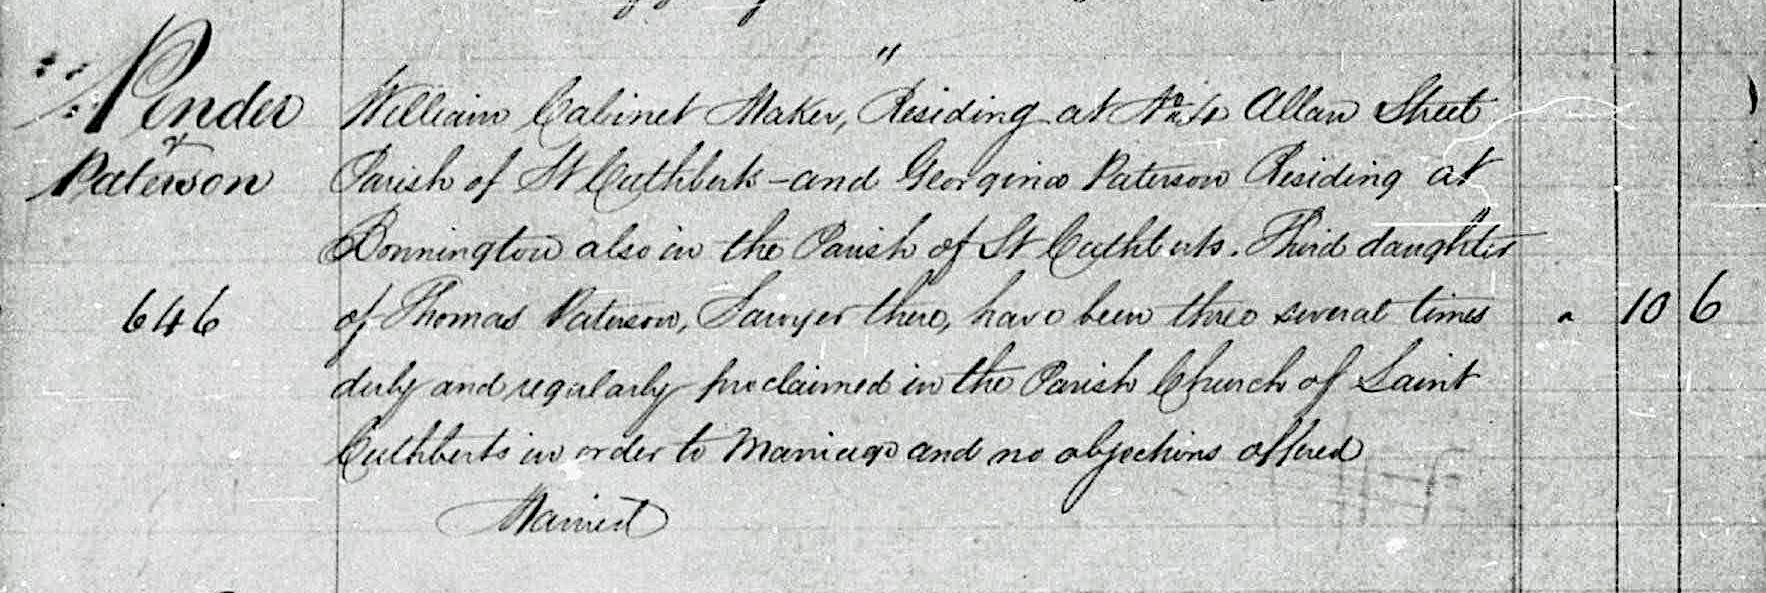 Pender
&
Paterson
646
"
William Cabinet Maker, Residing at No 4 Allan Street
Parish of St Cuthberts - and Georgina Paterson Residing at
Bonnington also in the Parish of St Cuthberts. Third daughter
of Thomas Paterson, Sawyer there, have been three several times " 10 6
duly and regularly proclaimed in the Parish Church of Saint
Cuthberts in order to Marriage and no objections offered
Married